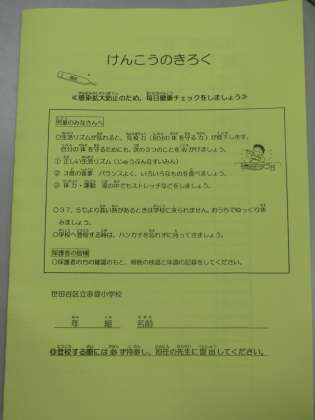 けんこうのきろく
≪感染拡大防止のため、毎日健康チェックをしましょう≫
児童のみなさんへ
○生活リズムが乱れると、免疫力（自分の体を守る力）が低下します。
自分の体を守るためにも、次の3つのことを心がけましょう。
① 正しい生活リズム（じゅうぶんなすいみん）
② 3度の食事 バランスよく、いろいろなものを食べましょう。
③ 体力・運動 家の中でもストレッチなどをしましょう。
○37.5℃より高い熱があるときは学校に来られません。おうちでゆっくり休
みましょう。
○学校へ登校する時は、ハンカチを忘れずに持ってきましょう。
保護者の皆様
○保護者の方の確認のもと、朝晩の検温と体調の記録をしてください。
世田谷区立赤堤小学校
年 組 名前
◎登校する際には必ず持参し、担任の先生に提出してください。